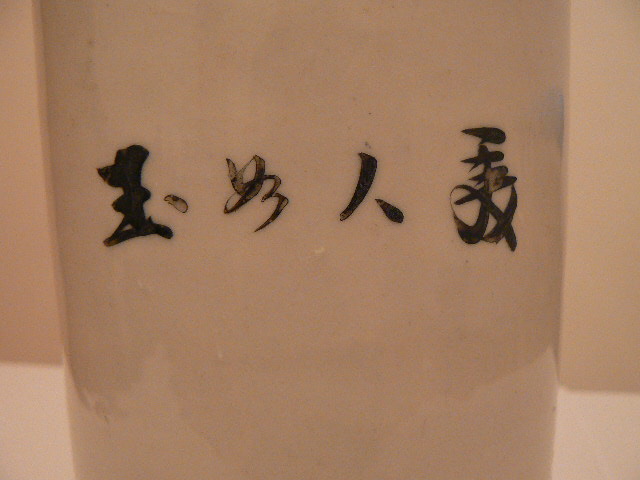 美人如玉